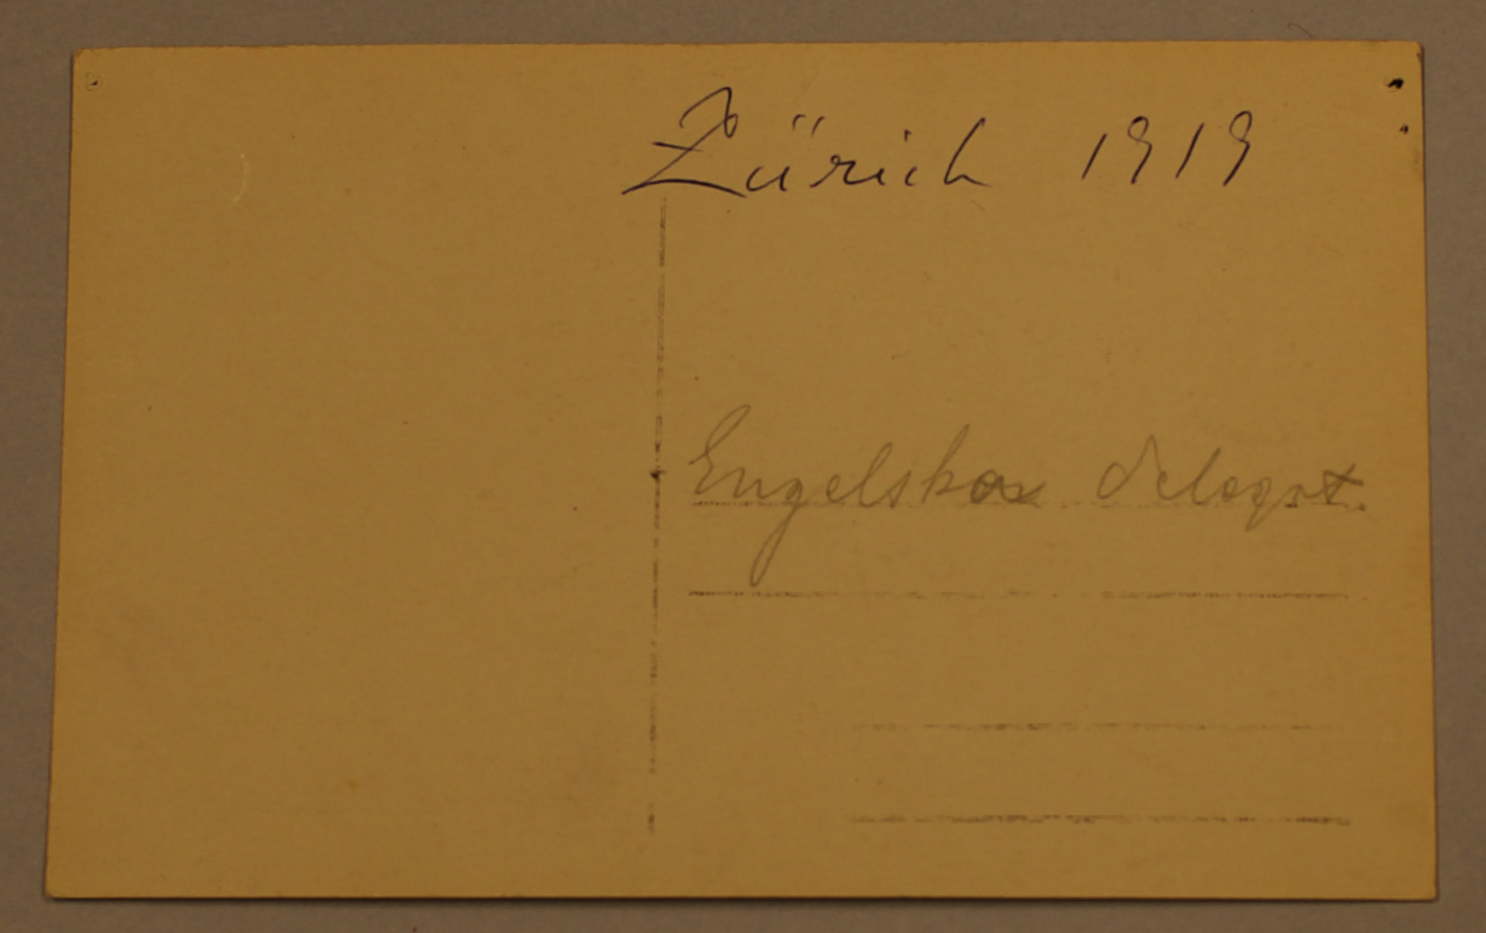 Zürich 1919
Engelska delegat